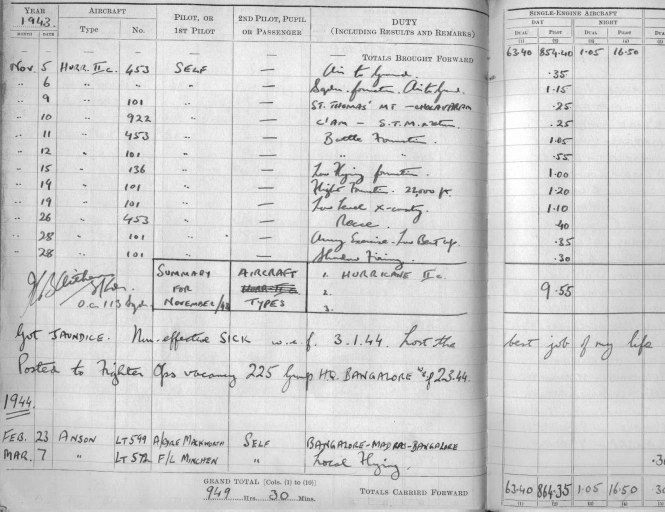 YEAR AIRCRAFT PILOT, OR 2ND PILOT, PUPIL DUTY SINGLE-ENGINE AIRCRAFT
1943. 1ST PILOT OR PASSENGER (INCLUDING RESULTS AND REMARKS) DAY NIGHT
MONTH DATE Type No. DUAL PILOT DUAL PILOT
(1) (2) (3) (4)
— — — — — — TOTALS BROUGHT FORWARD 63.40 854.40 1.05 16.50
Nov. 5 HURR. IIc. 453 SELF — Air to Ground. .35
" 6 " " " — Sqdn. formation. Air to Grnd. 1.15
" 9 " 101 " — ST. THOMAS' MT - CHOLAVARAM .25
" 10 " 922 " — C'AM - S.T.M. return. .25
" 11 " 453 " — Battle Formation. 1.05
" 12 " 101 " — " " .55
" 15 " 136 " — Low Flying formation. 1.00
" 19 " 101 " — Flight Formation. 22,000 ft. 1.20
" 19 " 101 " — Low Level X-country. 1.10
" 26 " 453 " — Recce. .40
" 28 " 101 " — Army Exercise - Low Beat up. .35
" 28 " 101 " — Shadow Firing. .30
SUMMARY AIRCRAFT 1. HURRICANE IIc.
S/Ldr. FOR HURR IIc 2. 9.55
O.C 113 Sqdn. NOVEMBER/43 TYPES 3.
Got JAUNDICE. Non-effective SICK w.e.f. 3.1.44. Lost the best job of my life
Posted to Fighter Ops vacancy 225 Group HQ. BANGALORE wef 2.3.44.
1944.
FEB. 23 ANSON LT 549 SELF BANGALORE-MADRAS-BANGALORE
MAR. 7 " LT 572 F/L MINCHEN " Local Flying. .30
GRAND TOTAL [Cols. (1) to (10)]
949 Hrs. 30 Mins. TOTALS CARRIED FORWARD 63.40 864.35 1.05 16.50
(1) (2) (3) (4)